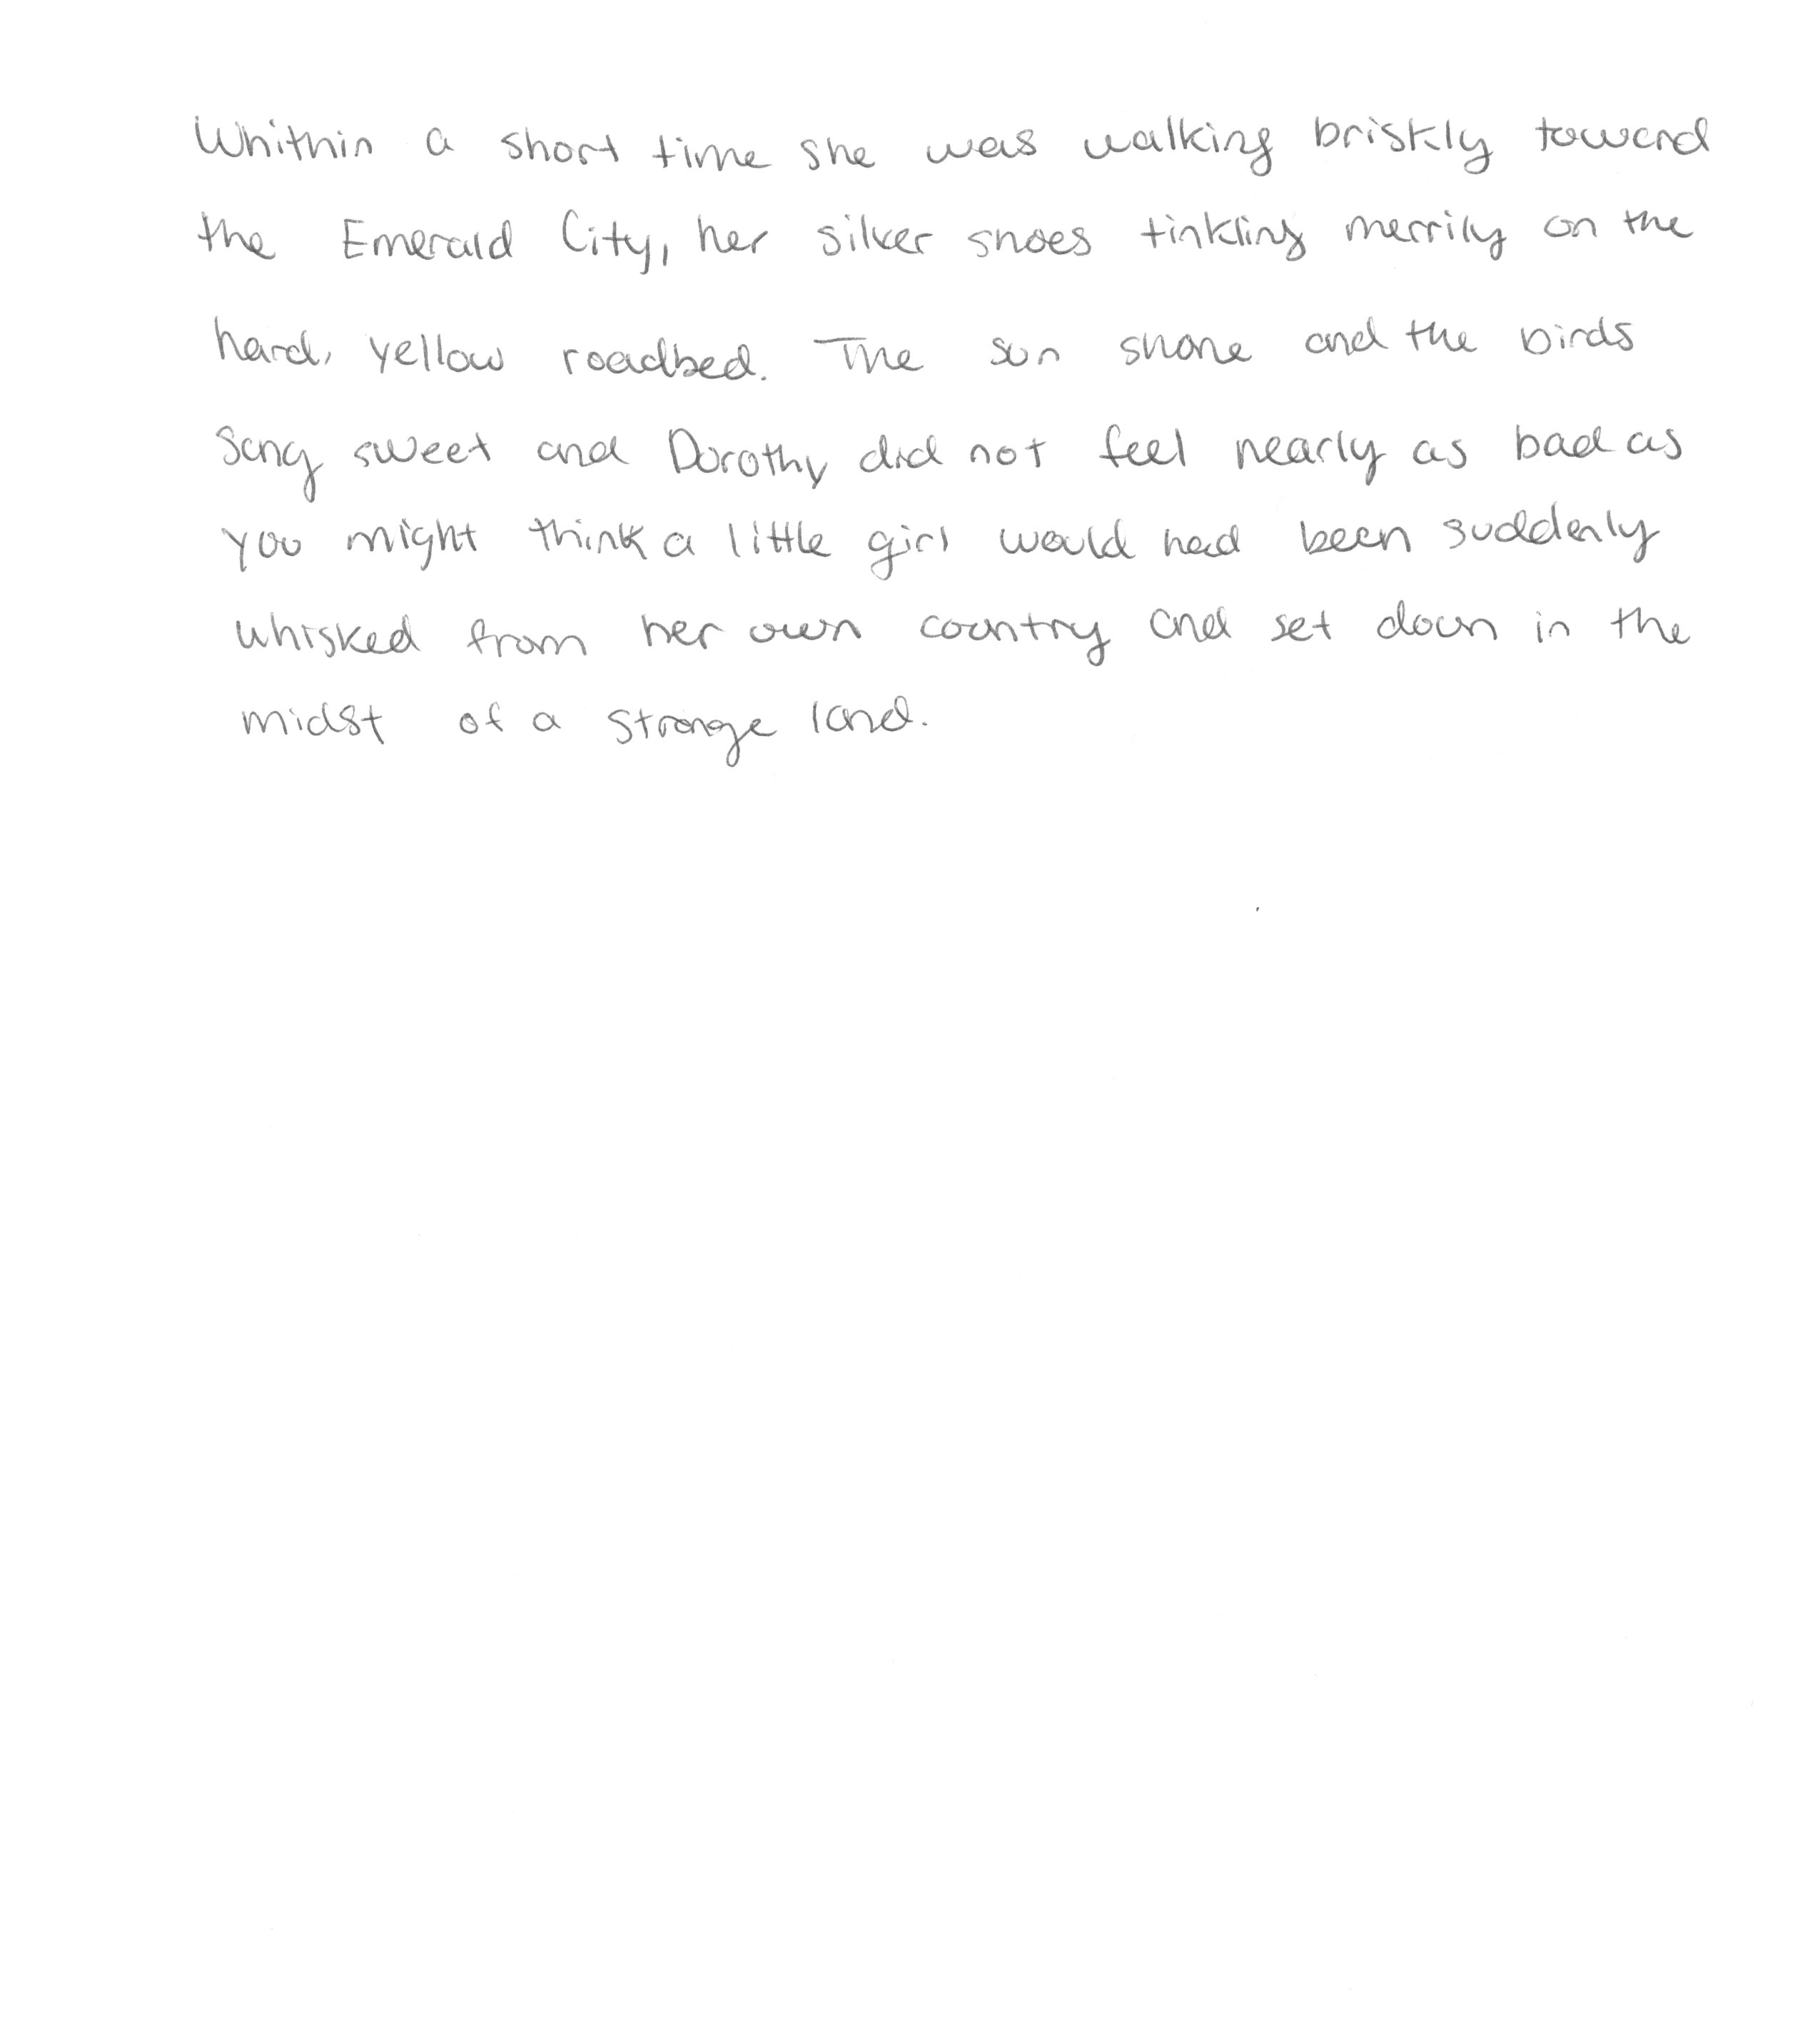 Whithin a short time she was walking briskly toward
the Emerald City, her silver shoes tinkling merrily on the
hard, yellow roadbed. The sun shone and the birds
sang sweet and Dorothy did not feel nearly as bad as
you might think a little girl would had been suddenly
whisked from her own country and set down in the
midst of a strange land.